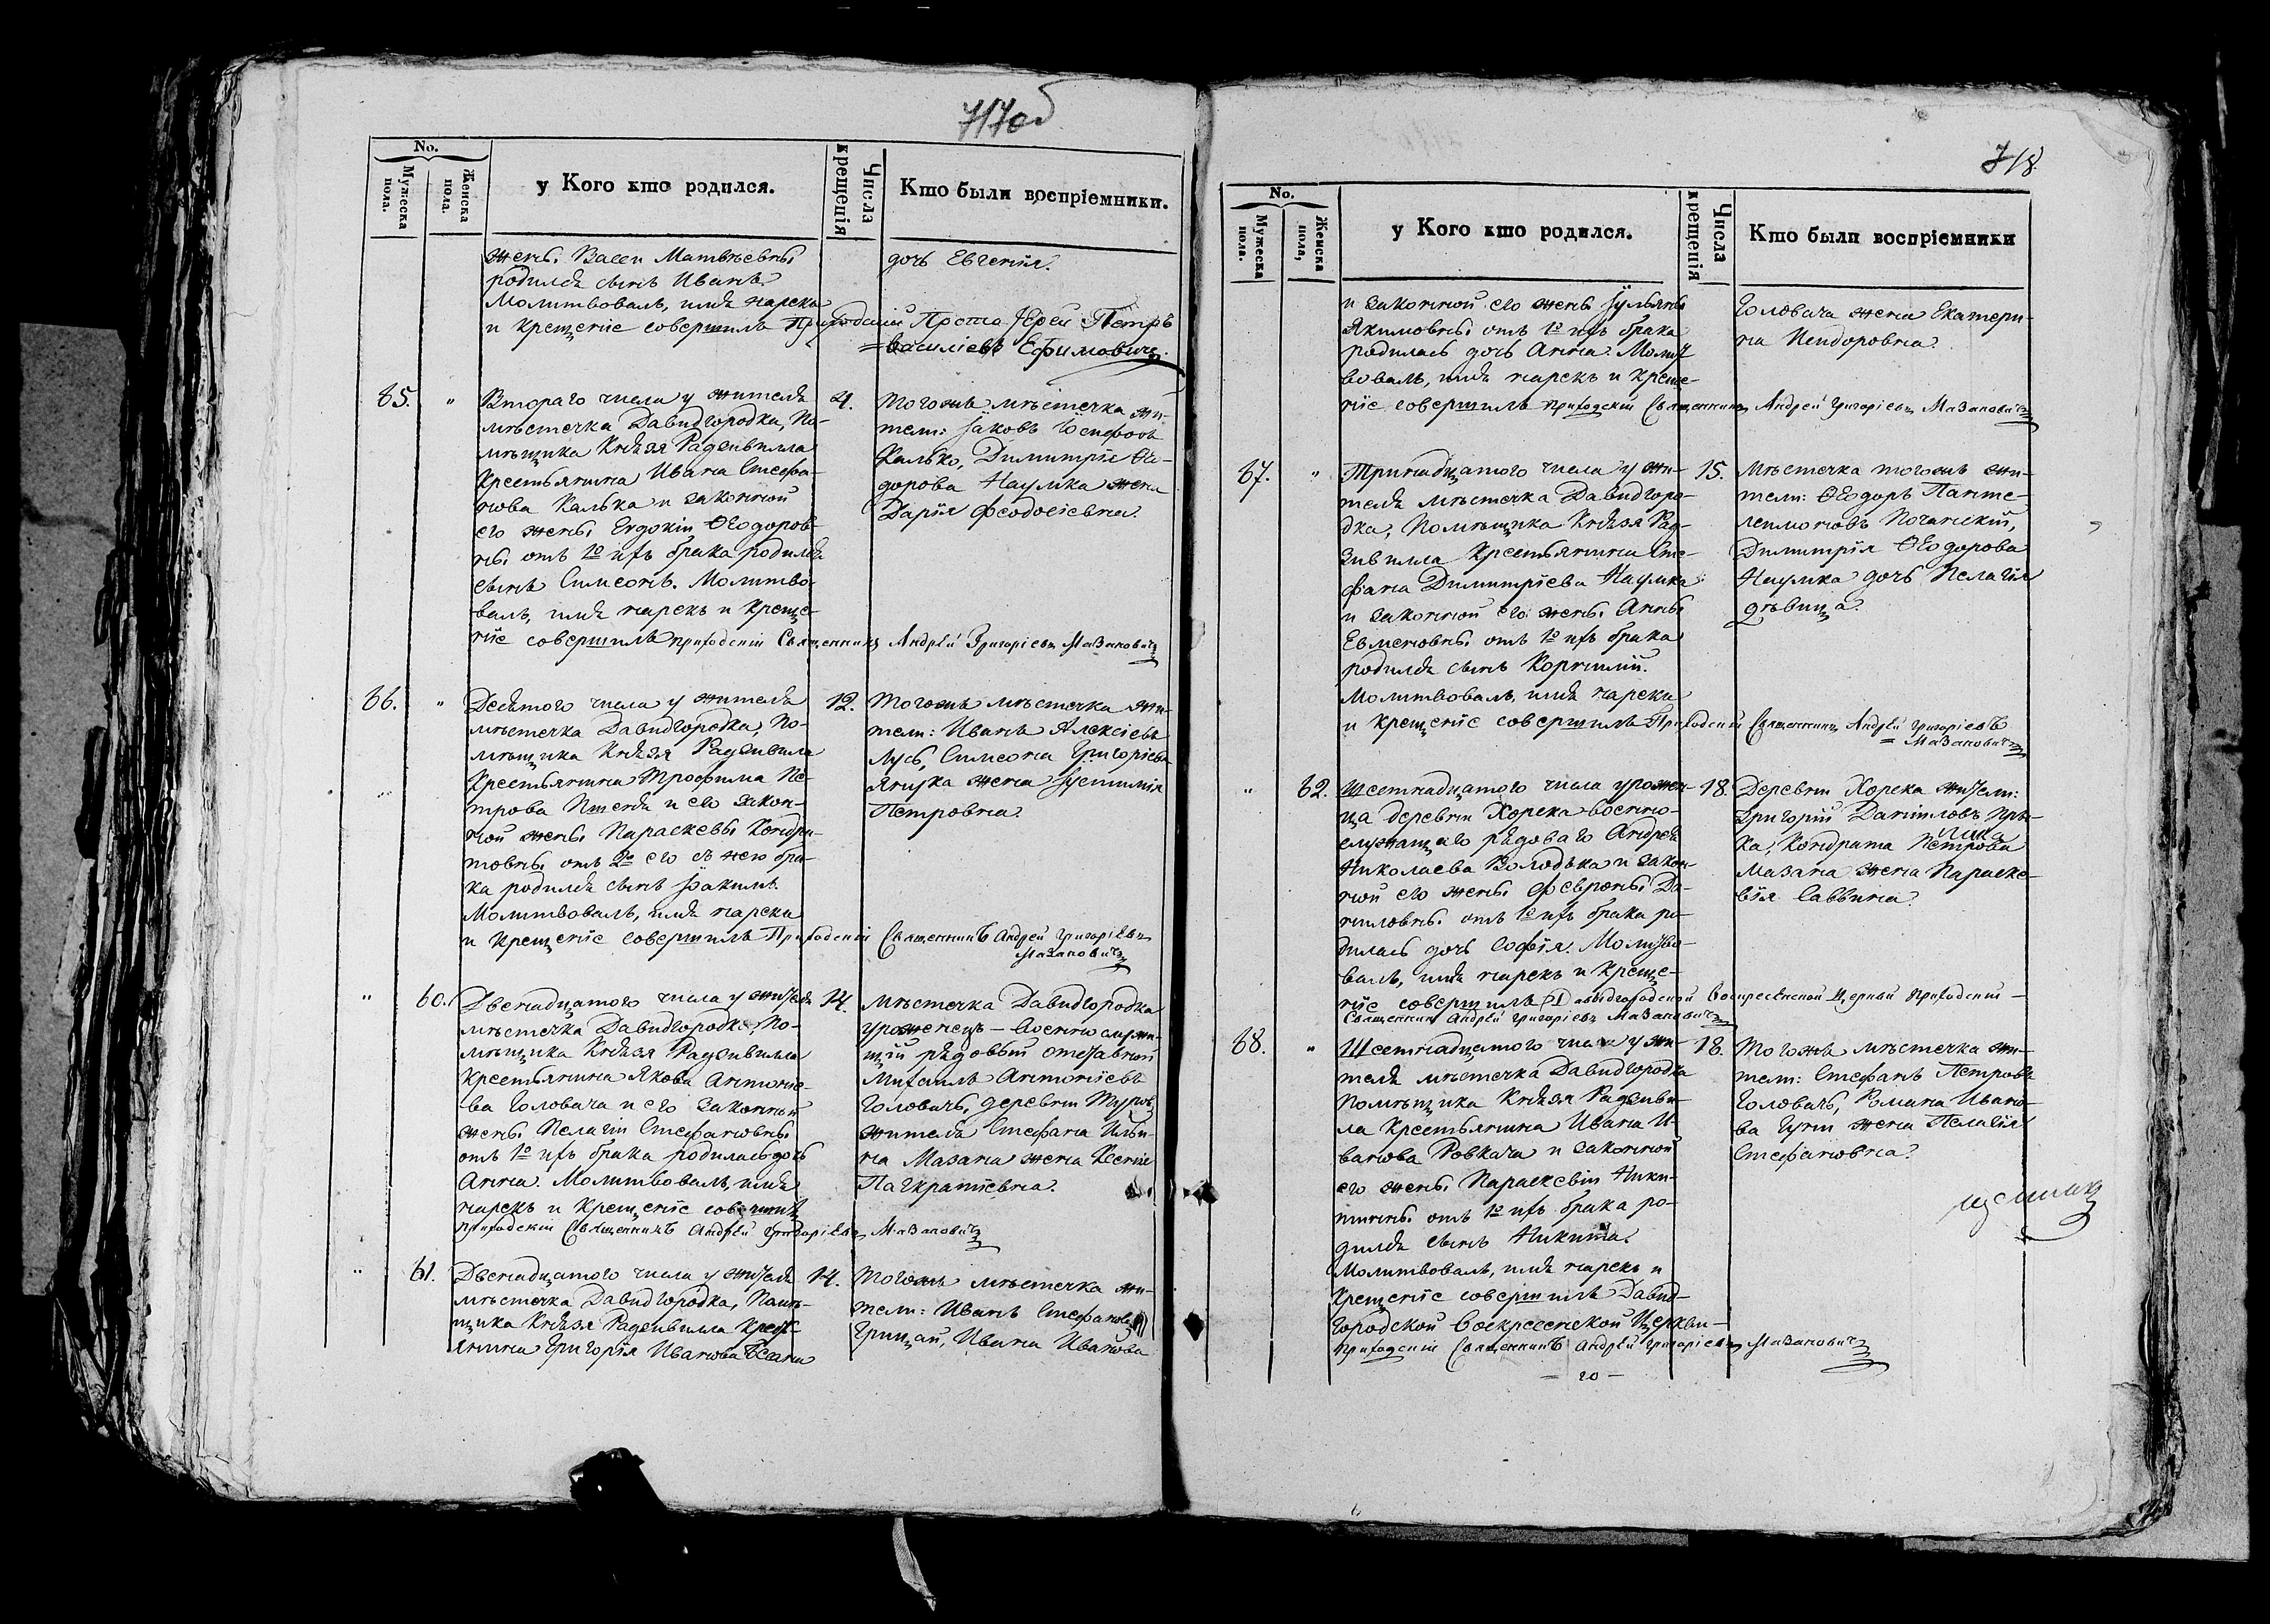 717об
No.
Мужеска пола.
Женска пола.
у Кого кто родился.
Числа крещенія
Кто были воспріемники.
жены Васси Матвѣевны
родился сынъ Иванъ.
Молитвовалъ, имя нарекъ
и крещеніе совершилъ Приходскій Прото Іерей Петръ
Василіевъ Ефимовичъ.
дочь Евгенія.
65. " Втораго числа у жителя
мѣстечка Давидгородка, По-
мѣщика Князя Радзивилла
Крестьянина Ивана Стефа-
нова Калька и законной
его жены Евдокіи Ѳеодоров-
ны отъ 1º ихъ брака родился
сынъ Симеонъ. Молитво-
валъ, имя нарекъ и креще-
ніе совершилъ приходскій Священникъ Андрей Григоріевъ Мазановичъ
4. Тогожъ мѣстечка жи-
тели: Іаковъ Іосифовъ
Калько, Димитрія Ѳео-
дорова Наумка жена
Дарія Феодосіевна.
66. " Десятого числа у жителя
мѣстечка Давидгородка, По-
мѣщика Князя Радзивила
Крестьянина Трофима Пе-
трова и его закон-
ной жены Параскевы Кондра-
товны отъ 2º его съ нею бра-
ка родился сынъ Іоакимъ.
Молитвовалъ, имя нарекъ
и крещеніе совершилъ Приходскій Священникъ Андрей Григоріевъ
Мазановичъ
12. Тогожъ мѣстечка жи-
тели: Иванъ Алексіевъ
Лусь, Симеона Григоріева
жена Іустинія
Петровна.
" 60. Двенадцатого числа у жителя
мѣстечка Давидгородка, По-
мѣщика Князя Радзивилла
Крестьянина Якова Антоніе-
ва Головача и его законной
жены Пелагіи Стефановны
отъ 1º ихъ брака родилась дочь
Анна. Молитвовалъ, имя
нарекъ и крещеніе совершилъ
приходскій Священникъ Андрей Григоріевъ Мазановичъ
14. Мѣстечка Давидгородка
уроженецъ – военно служа-
щій рядовый отставной
Михаилъ Антоніевъ
Головачъ, деревни
жителя Стефана Ильи-
на Мазана жена Ксенія
Панкратіевна.
" 61. Двенадцатого числа у жителя
мѣстечка Давидгородка, Помѣ-
щика Князя Радзивилла Кресть-
янина Григорія Иванова
14. Тогожъ мѣстечка жи-
тели: Иванъ Стефановъ
Грицай, Ивана Иванова
718.
No.
Мужеска пола.
Женска пола,
у Кого кто родился.
Числа крещенія
Кто были воспріемники
и законной его жены Іульяны
Якимовны отъ 1º ихъ брака
родилась дочь Анна. Молит-
вовалъ, имя нарекъ и креще-
ніе совершилъ приходскій Священникъ Андрей Григоріевъ Мазановичъ
Головача жена Екатери-
на Исидоровна.
67. " Тринадцатого числа у жи-
теля мѣстечка Давидгоро-
дка, Помѣщика Князя Рад-
зивилла Крестьянина Сте-
фана Димитріева Наумка
и законной его жены Анны
Евменовны отъ 1º ихъ брака
родился сынъ Корнилій.
Молитвовалъ, имя нарекъ
и крещеніе совершилъ Приходскій Священникъ Андрей Григоріевъ
Мазановичъ
15. Мѣстечка тогожъ жи-
тели: Ѳеодоръ Панте-
леимоновъ
Димитрія Ѳеодорова
Наумка дочь Пелагія
дѣвица.
" 62. Шестнадцатого числа урожен-
ца деревни Хорска военно-
служащаго рядоваго Андрея
Николаева Володька и закон-
ной его жены Февроны Да-
ниловны отъ 1º ихъ брака ро-
дилась дочь Софія. Молитво-
валъ, имя нарекъ и креще-
ніе совершилъ Давидгородской Воскресенской Церкви приходскій –
Священникъ Андрей Григоріевъ Мазановичъ
18. Деревни Хорска жители:
Григорій Даниловъ
Кондрата Петрова
Мазана жена Параске-
вія Саввина.
68. " Шестнадцатого числа у жи-
теля мѣстечка Давидгородка
Помѣщика Князя Радзиви-
ла Крестьянина Ивана И-
ванова Ровкача и законной
его жены Параскевіи Ники-
тины отъ 1º ихъ брака ро-
дился сынъ Никита.
Молитвовалъ, имя нарекъ и
крещеніе совершилъ Давид-
городской Воскресенской Церкви –
приходскій Священникъ Андрей Григоріевъ Мазановичъ
18. Тогожъ мѣстечка жи-
тели: Стефанъ Петровъ
Головачъ, Романа Ивано-
ва жена Пелагія
Стефановна.